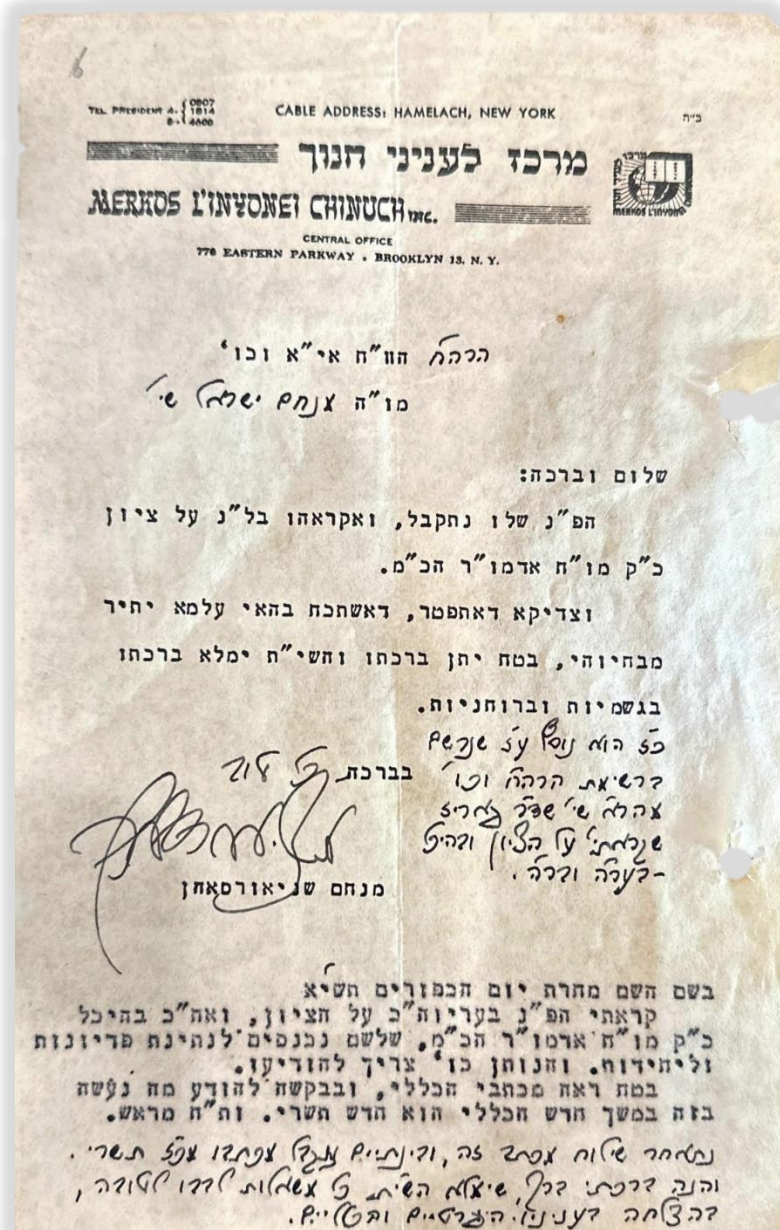 6
TEL. PRESIDENT 4- 0507 1814
3- 4600
CABLE ADDRESS: HAMELACH, NEW YORK
ב"ה
מרכז לעניני חנוך
MERKOS L'INYONEI CHINUCH INC.
MERKOS L'INYONEI
CENTRAL OFFICE
770 EASTERN PARKWAY . BROOKLYN 13, N. Y.
הרה"ח הוו"ח אי"א וכו'
מו"ה מנחם ישראל שי'
שלום וברכה:
הפ"נ שלו נתקבל, ואקראהו בל"נ על ציון
כ"ק מו"ח אדמו"ר הכ"מ.
וצדיקא דאתפטר, דאשתכח בהאי עלמא יתיר
מבחיוהי, בטח יתן ברכתו והשי"ת ימלא ברכתו
בגשמיות וברוחניות.
כ"ז הוא נוסף ע"ז שנרשם
ברשימת הרה"ח וכו'
שקראתי על הציון
בברכת כל טוב
מנחם שניאורסאהן
בשם השם מחרת יום הכפורים תשי"א
קראתי הפ"נ בעריוה"כ על הציון, ואח"כ בהיכל
כ"ק מו"ח אדמו"ר הכ"מ, שלשם נכנסים לנתינת פדיונות
וליחידות. והנותן כו' צריך להודיעו.
בטח ראה מכתבי הכללי, ובבקשה להודע מה נעשה
בזה במשך חדש הכללי הוא חדש תשרי. ות"ח מראש.
נתאחר שילוח מכתב זה, ובינתיים נתקבל מכתבו תשרי.
והנה ברכתי ברך, שימלא השי"ת כל משאלות לבבו לטובה,
בהצלחה בעניניו הפרטיים והכלליים.